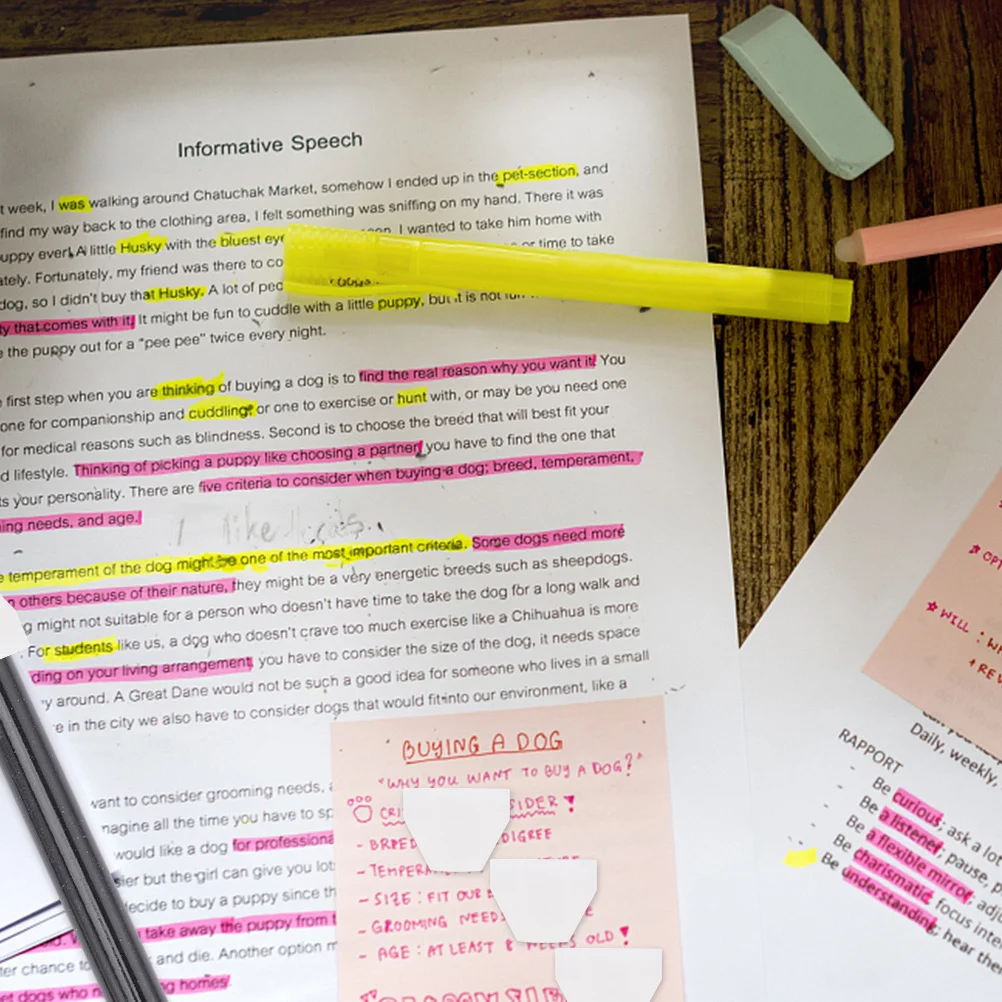 Informative Speech
t week, I was walking around Chatuchak Market, somehow I ended up in the pet-section, and
find my way back to the clothing area, I felt something was sniffing on my hand. There it was
uppy ever! A little Husky with the bluest eye I wanted to take him home with
ately. Fortunately, my friend was there to co or time to take
dog, so I didn't buy that Husky. A lot of
ty that comes with it! It might be fun to cuddle with a little puppy, but it is not
e the puppy out for a "pee pee" twice every night.
first step when you are thinking of buying a dog is to find the real reason why you want it! You
one for companionship and cuddling? or one to exercise or hunt with, or may be you need one
for medical reasons such as blindness. Second is to choose the breed that will best fit your
d lifestyle. Thinking of picking a puppy like choosing a partner, you have to find the one that
ts your personality. There are five criteria to consider when buying a dog; breed, temperament,
ing needs, and age.
I like
temperament of the dog might be one of the most important criteria. Some dogs need more
n others because of their nature, they might be a very energetic breeds such as sheepdogs.
g might not suitable for a person who doesn't have time to take the dog for a long walk and
. For students like us, a dog who doesn't crave too much exercise like a Chihuahua is more
ding on your living arrangement, you have to consider the size of the dog, it needs space
y around. A Great Dane would not be such a good idea for someone who lives in a small
e in the city we also have to consider dogs that would fit into our environment, like a
want to consider grooming needs,
magine all the time you have to sp
would like a dog for professiona
sier but the girl can give you lot
decide to buy a puppy since th
take away the puppy from t
ter chance to and die. Another option m
et dogs who n g homes.
BUYING A DOG
"WHY YOU WANT TO BUY A DOG?"
CRI SIDER!
- BREED DIGREE
- TEMPERA TURE
- SIZE: FIT OUR
- GROOMING NEEDS
- AGE: AT LEAST 8 WEEKS OLD!
OPT
WILL : WH
+ REV
Daily, weekly,
RAPPORT
- Be curious; ask a lo
- Be a listener; pause, p
- Be a flexible mirror; adju
- Be charismatic; focus inte
- Be understanding; hear the